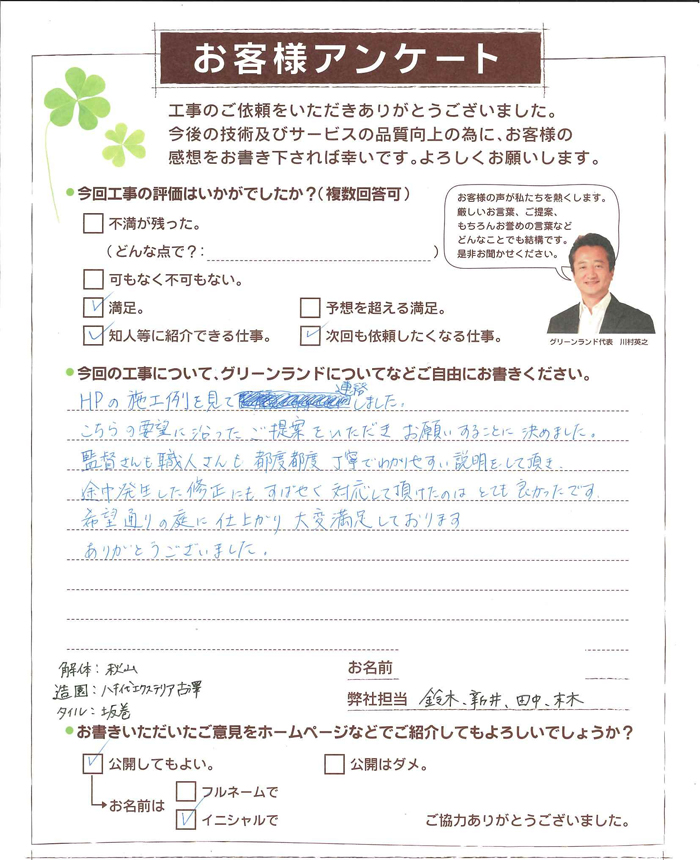 お客様アンケート
工事のご依頼をいただきありがとうございました。
今後の技術及びサービスの品質向上の為に、お客様の
感想をお書き下されば幸いです。よろしくお願いします。
今回工事の評価はいかがでしたか?(複数回答可)
不満が残った。
(どんな点で?: )
可もなく不可もない。
満足。
予想を超える満足。
知人等に紹介できる仕事。
次回も依頼したくなる仕事。
お客様の声が私たちを熱くします。
厳しいお言葉、ご提案、
もちろんお誉めの言葉など
どんなことでも結構です。
是非お聞かせください。
グリーンランド代表 川村英之
今回の工事について、グリーンランドについてなどご自由にお書きください。
HPの施工例を見て連絡しました。
こちらの要望に沿ったご提案をいただきお願いすることに決めました。
監督さんも職人さんも都度都度丁寧でわかりやすい説明をして頂き
途中発生した修正にもすばやく対応して頂けたのはとても良かったです
希望通りの庭に仕上がり大変満足しております
ありがとうございました。
解体:秋山
造園:ハチイチエクステリア古澤
タイル:坂巻
お名前
弊社担当 鈴木、新井、田中、
お書きいただいたご意見をホームページなどでご紹介してもよろしいでしょうか?
公開してもよい。
公開はダメ。
お名前は
フルネームで
イニシャルで
ご協力ありがとうございました。